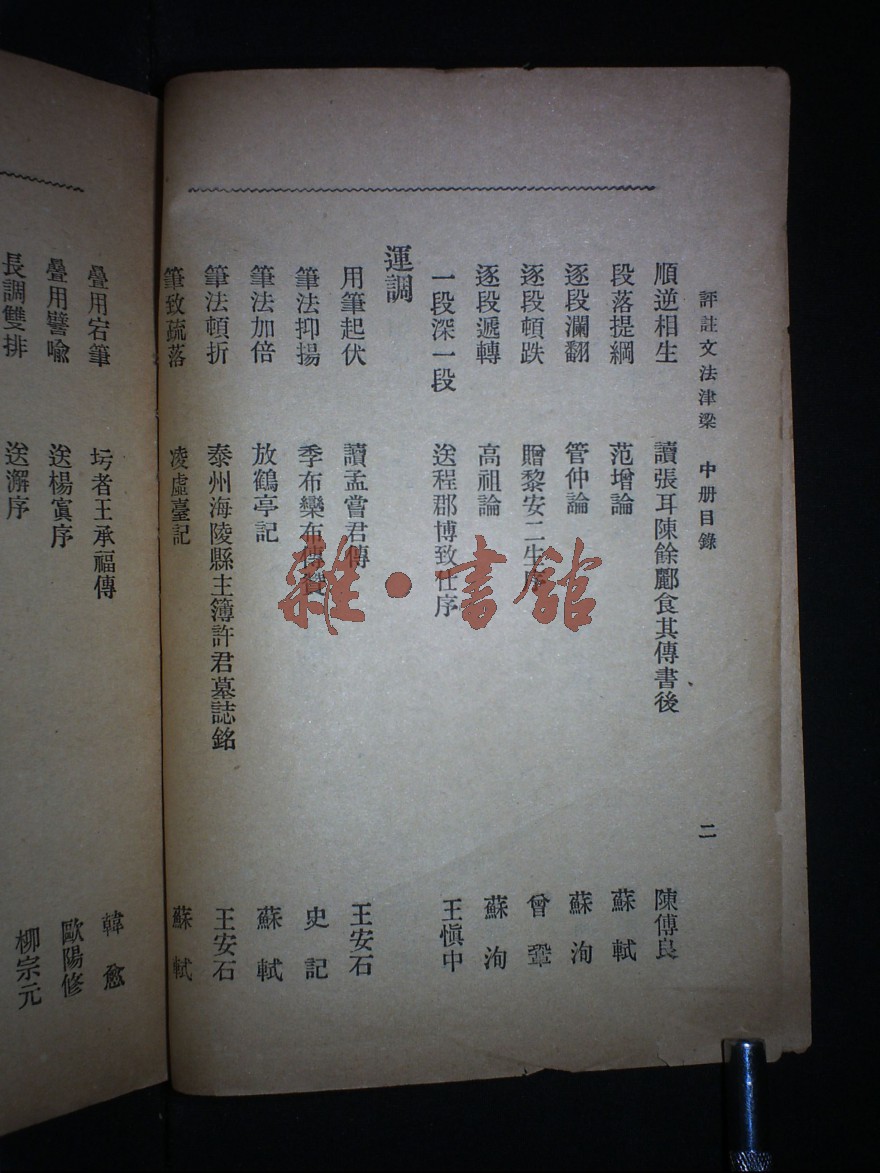 評註文法津梁 中册目錄 二
順逆相生 讀張耳陳餘酈食其傳書後 陳傅良
段落提綱 范增論 蘇軾
逐段瀾翻 管仲論 蘇洵
逐段頓跌 贈黎安二生序 曾鞏
逐段遞轉 高祖論 蘇洵
一段深一段 送程郡博致仕序 王愼中
運調
用筆起伏 讀孟嘗君傳 王安石
筆法抑揚 季布欒布傳贊 史記
筆法加倍 放鶴亭記 蘇軾
筆法頓折 泰州海陵縣主簿許君墓誌銘 王安石
筆致疏落 凌虛臺記 蘇軾
疊用宕筆 圬者王承福傳 韓愈
疊用譬喻 送楊寘序 歐陽修
長調雙排 送澥序 柳宗元
雜·書館